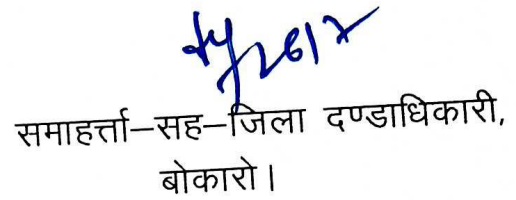 26/7
समाहर्त्ता–सह–जिला दण्डाधिकारी,
बोकारो।